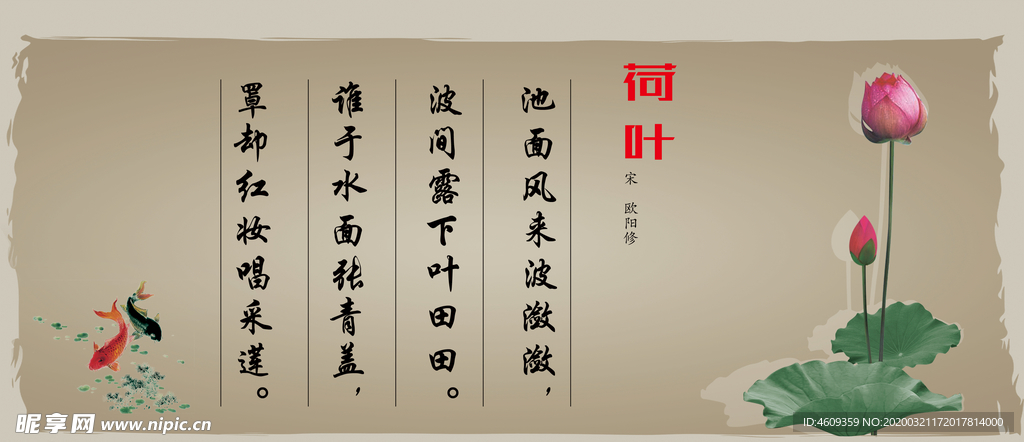 荷叶
宋 欧阳修
池面风来波潋潋，
波间露下叶田田。
谁于水面张青盖，
罩却红妆唱采莲。
昵享网 www.nipic.cn
ID:4609359 NO:20200321172017814000